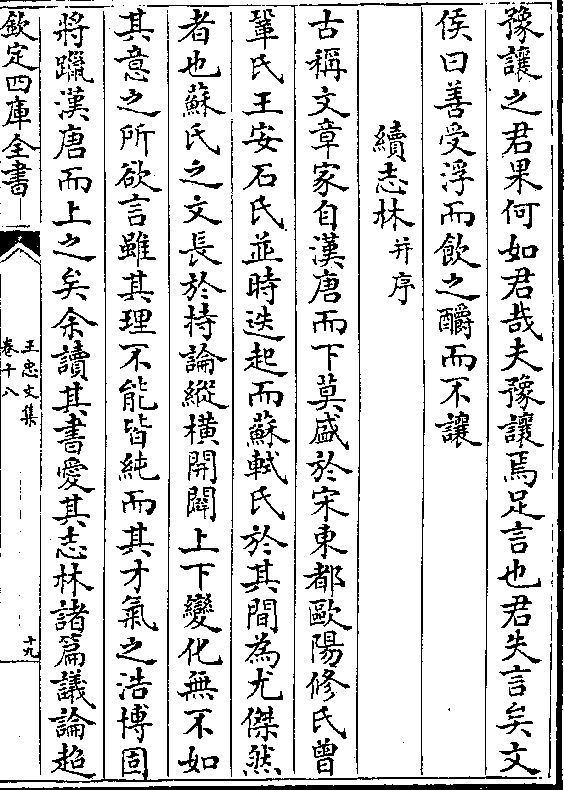 豫讓之君果何如君哉夫豫讓焉足言也君失言矣文
侯曰善受浮而飲之釂而不讓
續志林并序
古稱文章家自漢唐而下莫盛於宋東都歐陽修氏曾
鞏氏王安石氏並時迭起而蘇軾氏於其間為尤傑然
者也蘇氏之文長於持論縱橫開闔上下變化無不如
其意之所欲言雖其理不能皆純而其才氣之浩博固
將躐漢唐而上之矣余讀其書愛其志林諸篇議論超
欽定四庫全書
王忠文集
卷十八
十九